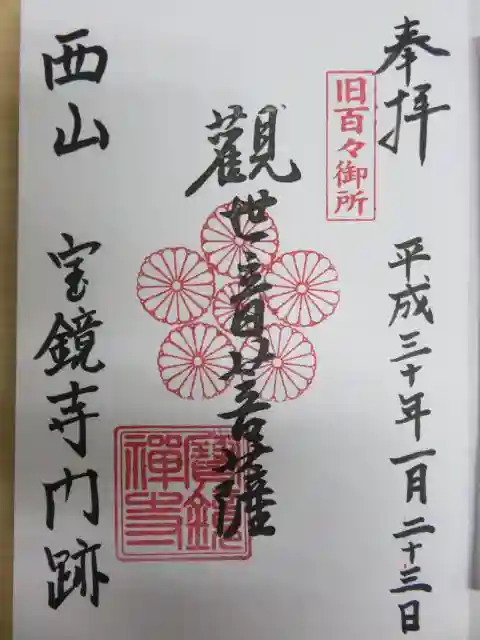 奉拝
旧百々御所
平成三十年一月二十三日
觀世音菩薩
寶鏡禅寺
西山 宝鏡寺門跡